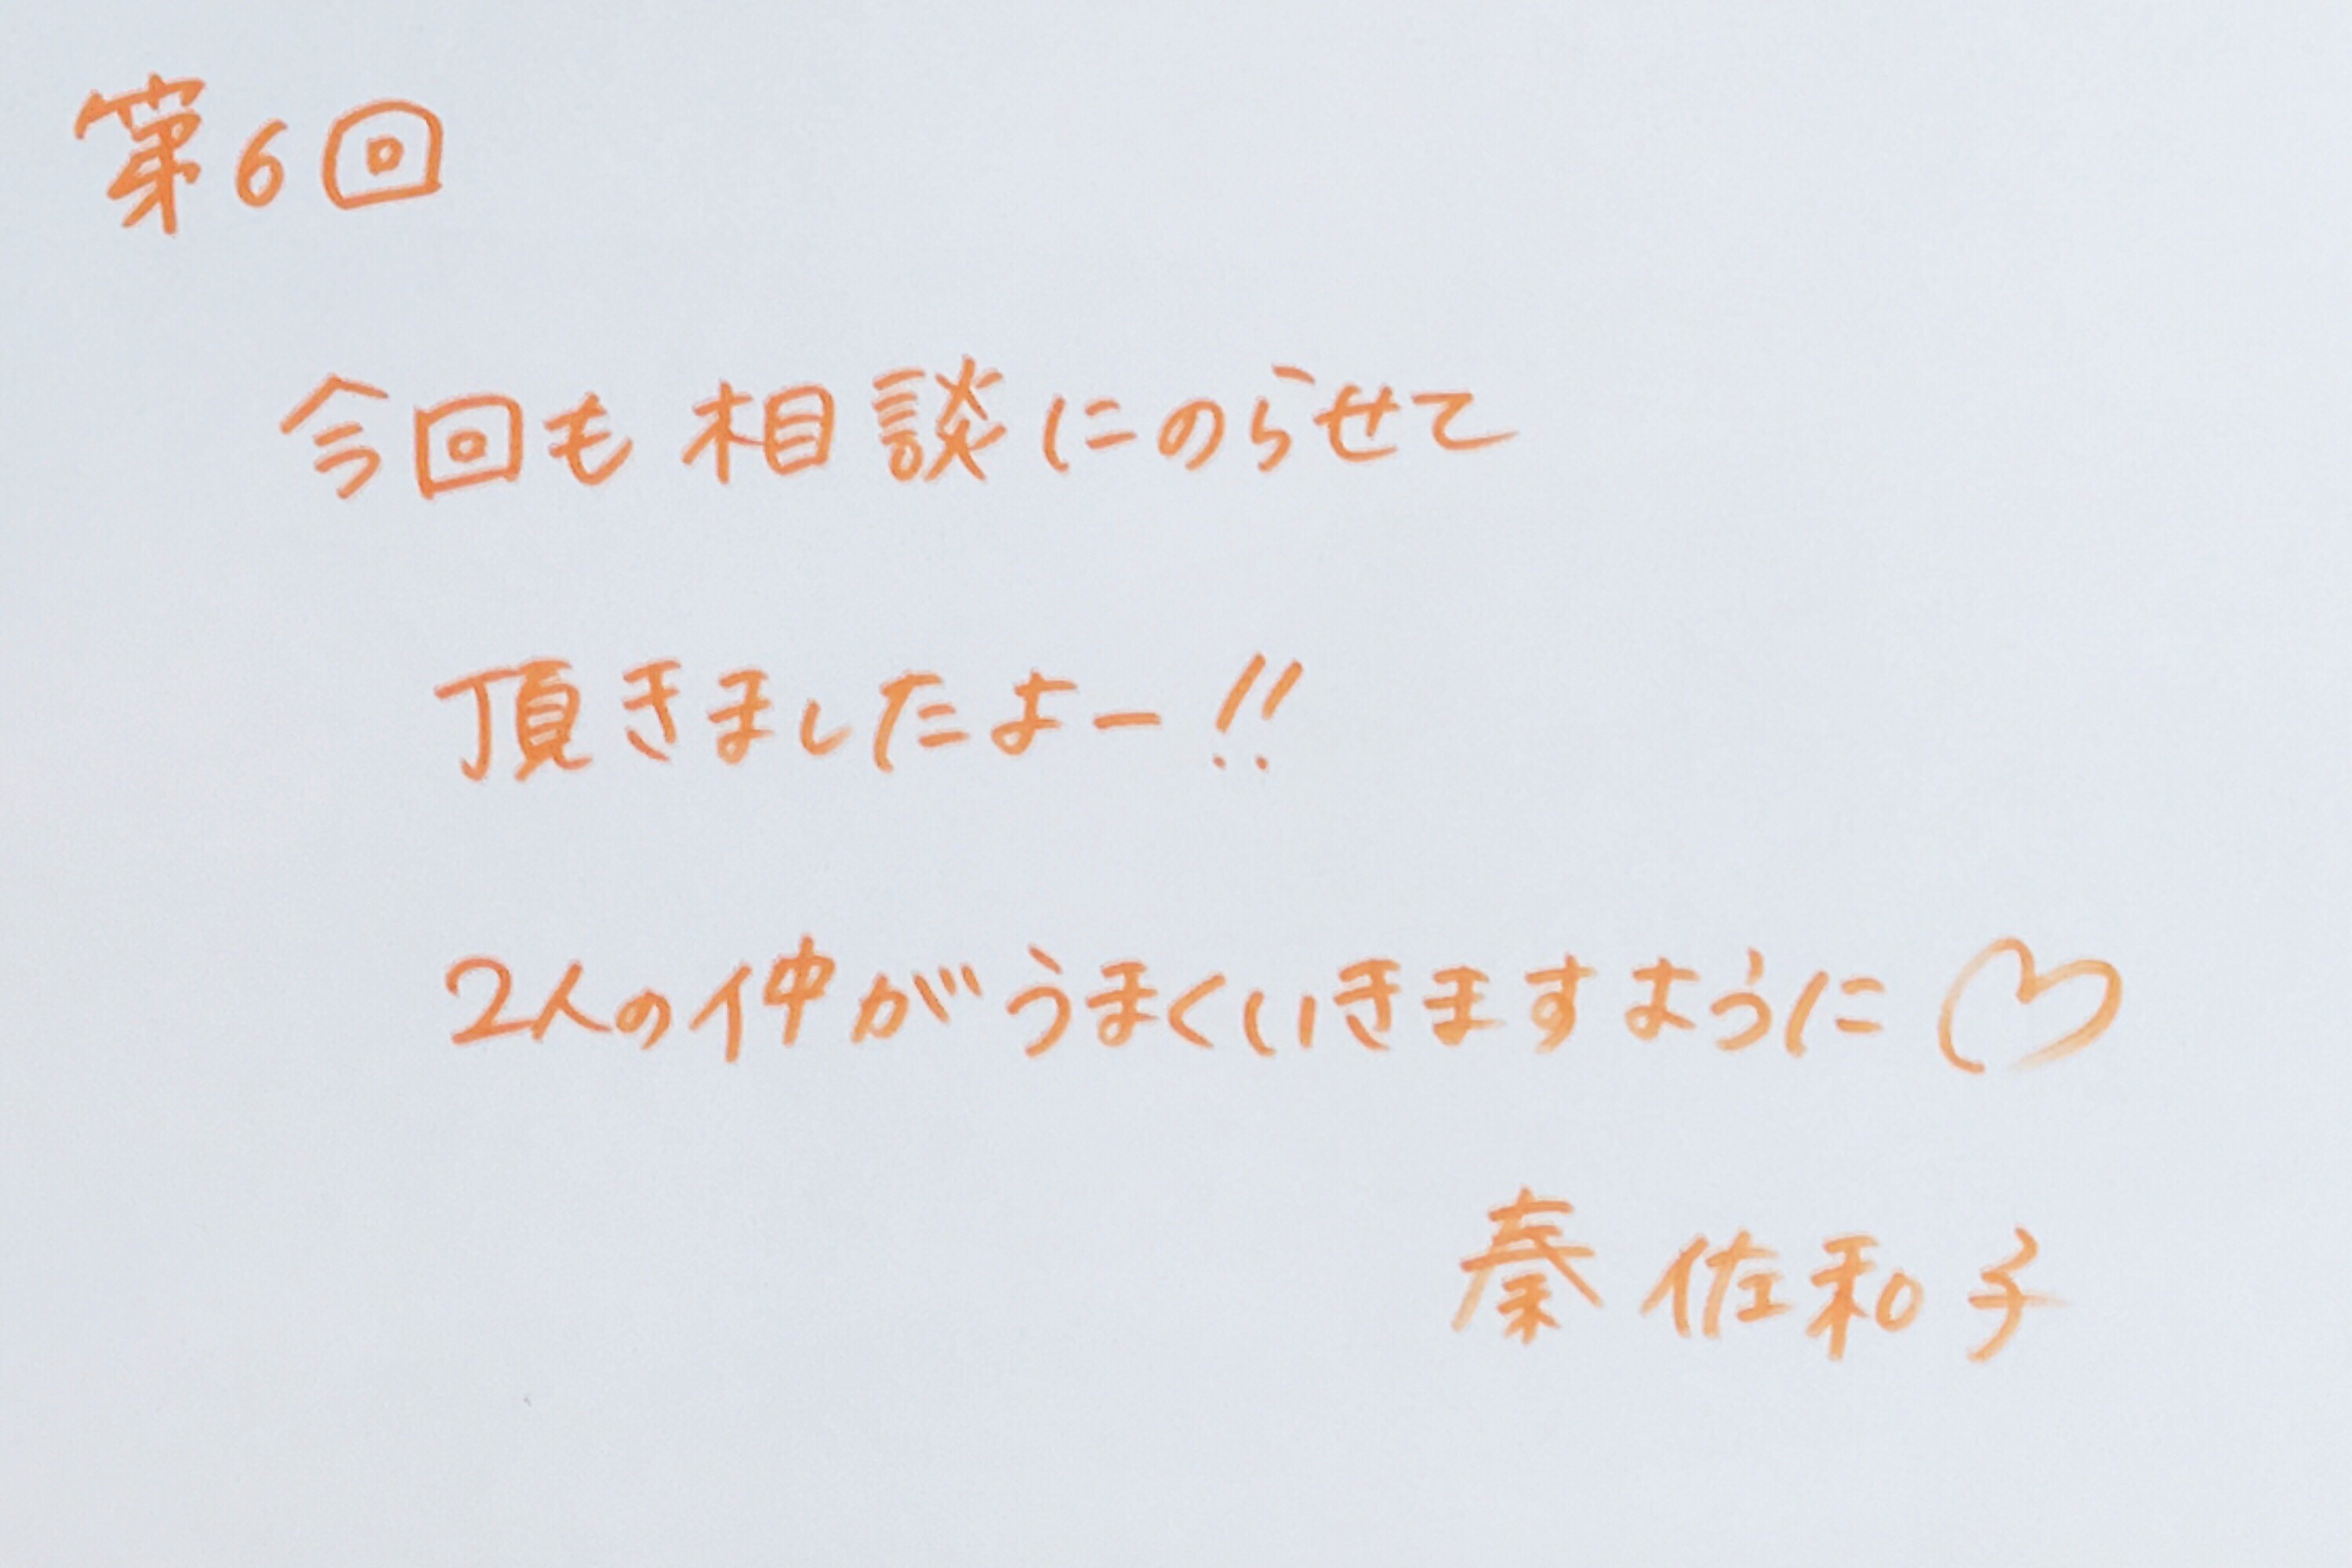 第6回
今回も相談にのらせて
頂きましたよー!!
2人の仲がうまくいきますように♡
秦佐和子